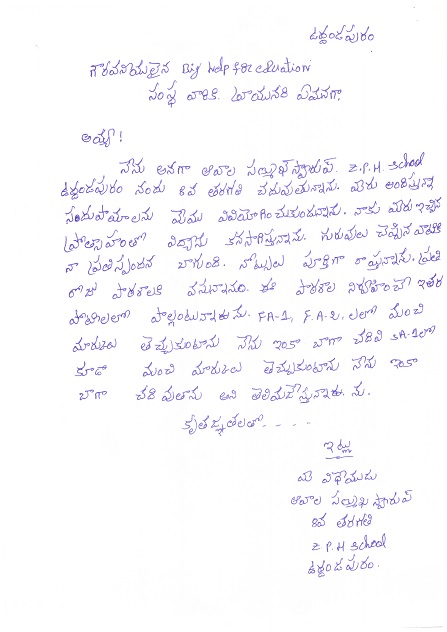 ఉద్దండపురం
గౌరవనీయులైన Big help for eduation
సంస్థ వారికి వ్రాయునది ఏమనగా.
అయ్యా!
నేను అనగా ఆవాల సణ్ముఖ్ స్వారూప్. Z.P.H School
ఉద్దండపురం నందు 8వ తరగతి చదువుతున్నాను. మీరు అందిస్తున్న
సదుపాయాలను మేము వినియోగించుకుంటున్నాను. నాకు మీరు ఇచ్చిన
ప్రోత్సాహంతో విద్యను కొనసాగిస్తున్నాను. గురువులు చెప్పిన వాటికి
నా ప్రతిస్పందన బాగుంది. నోట్సులు పూర్తిగా రాస్తున్నాను. ప్రతి
రోజు పాఠశాలకి వస్తున్నాను. ఈ పాఠశాల నిర్వహించే ఇతర
పోటీలలో పాల్గంటున్నాను. FA-1, F.A-2. లలో మంచి
మార్కులు తెచ్చుకుంటాను నేను ఇంకా బాగా చదివి SA-1లో
కూడా మంచి మార్కులు తెచ్చుకుంటాను నేను ఇంకా
బాగా చదివుతాను అని తెలియచేస్తున్నాను.
కృతజ్ఞతలతో. . . . .
ఇట్లు
మీ విధేయుడు
ఆవాల సణ్ముఖ స్వారూప్
8వ తరగతి
Z.P.H School
ఉద్దండపురం.